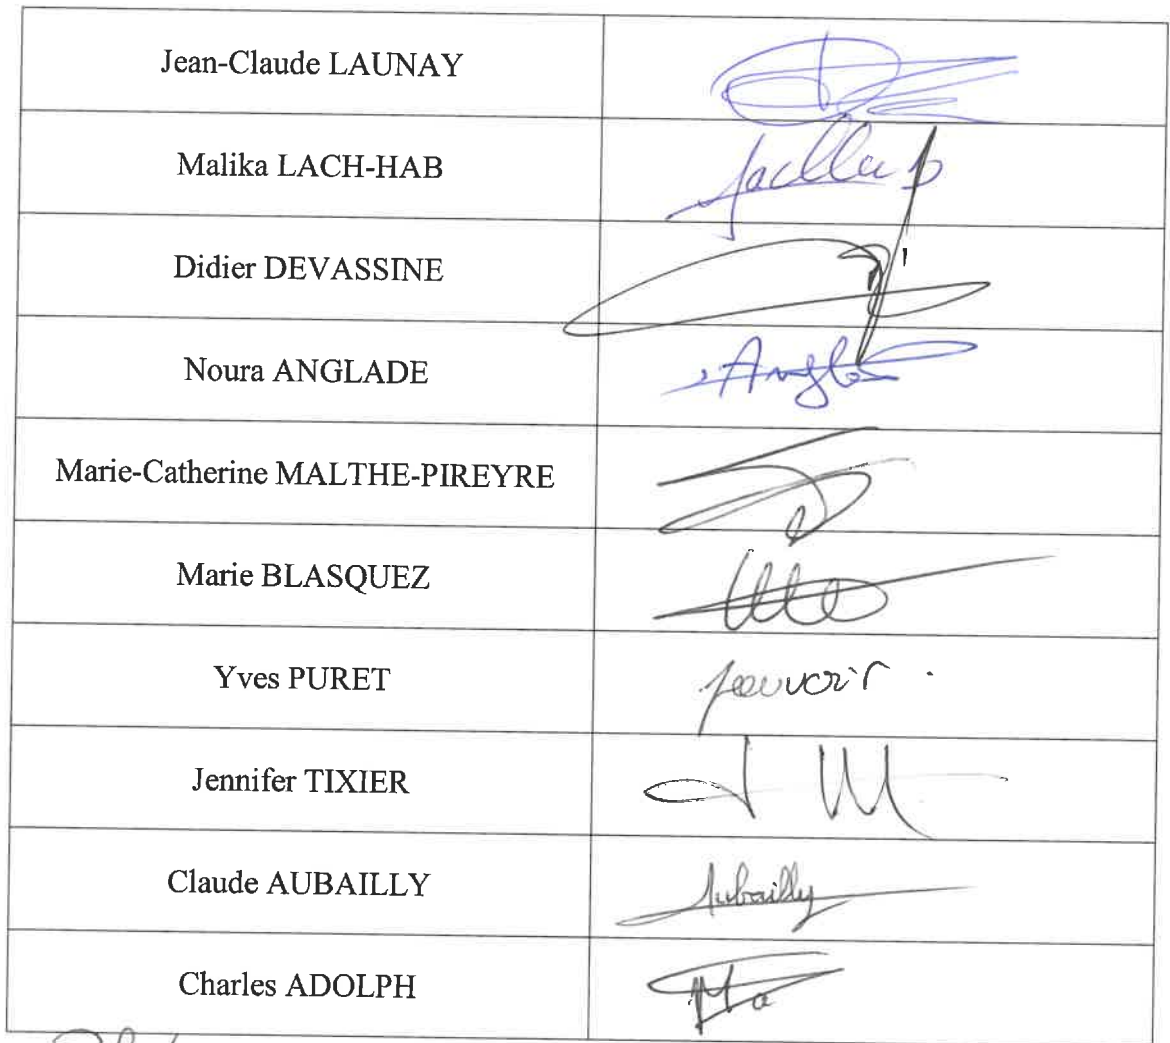 Jean-Claude LAUNAY
Malika LACH-HAB
Didier DEVASSINE
Noura ANGLADE
Marie-Catherine MALTHE-PIREYRE
Marie BLASQUEZ
Yves PURET pouvoir.
Jennifer TIXIER
Claude AUBAILLY Aubailly
Charles ADOLPH